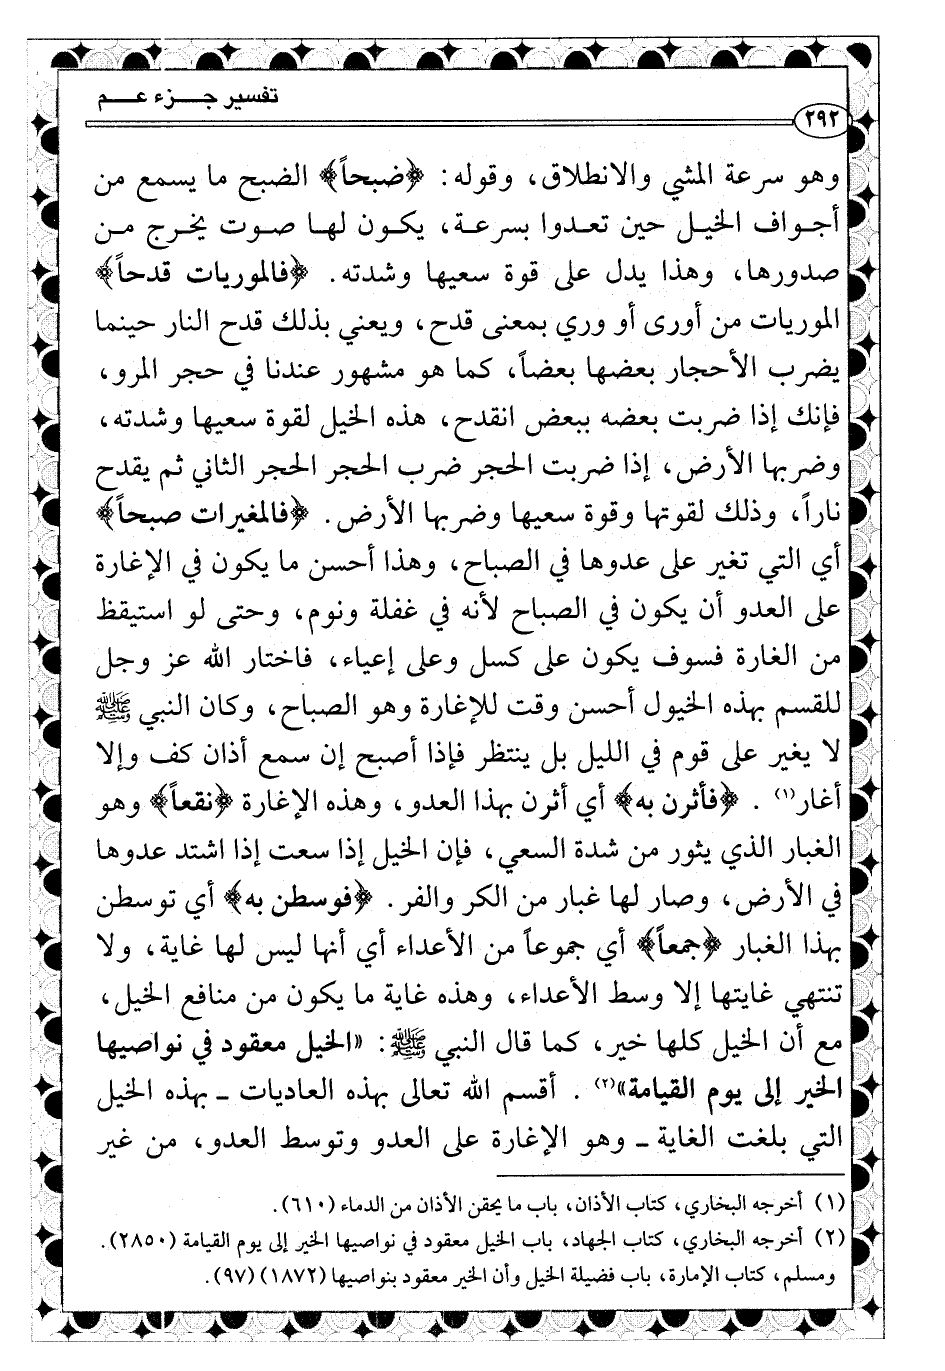 تفسير جـــزء عـــم
٢٩٢
وهو سرعة المشي والانطلاق، وقوله: ﴿ضبحاً﴾ الضبح ما يسمع من
أجواف الخيل حين تعدوا بسرعة، يكون لها صوت يخرج من
صدورها، وهذا يدل على قوة سعيها وشدته. ﴿فالموريات قدحاً﴾
الموريات من أورى أو وري بمعنى قدح، ويعني بذلك قدح النار حينما
يضرب الأحجار بعضها بعضاً، كما هو مشهور عندنا في حجر المرو،
فإنك إذا ضربت بعضه ببعض انقدح، هذه الخيل لقوة سعيها وشدته،
وضربها الأرض، إذا ضربت الحجر ضرب الحجر الحجر الثاني ثم يقدح
ناراً، وذلك لقوتها وقوة سعيها وضربها الأرض. ﴿فالمغيرات صبحاً﴾
أي التي تغير على عدوها في الصباح، وهذا أحسن ما يكون في الإغارة
على العدو أن يكون في الصباح لأنه في غفلة ونوم، وحتى لو استيقظ
من الغارة فسوف يكون على كسل وعلى إعياء، فاختار الله عز وجل
للقسم بهذه الخيول أحسن وقت للإغارة وهو الصباح، وكان النبي ﷺ
لا يغير على قوم في الليل بل ينتظر فإذا أصبح إن سمع أذان كف وإلا
أغار(١) . ﴿فأثرن به﴾ أي أثرن بهذا العدو، وهذه الإغارة ﴿نقعاً﴾ وهو
الغبار الذي يثور من شدة السعي، فإن الخيل إذا سعت إذا اشتد عدوها
في الأرض، وصار لها غبار من الكر والفر. ﴿فوسطن به﴾ أي توسطن
بهذا الغبار ﴿جمعاً﴾ أي جموعاً من الأعداء أي أنها ليس لها غاية، ولا
تنتهي غايتها إلا وسط الأعداء، وهذه غاية ما يكون من منافع الخيل،
مع أن الخيل كلها خير، كما قال النبي ﷺ: «الخيل معقود في نواصيها
الخير إلى يوم القيامة»(٢) . أقسم الله تعالى بهذه العاديات ـ بهذه الخيل
التي بلغت الغاية ـ وهو الإغارة على العدو وتوسط العدو، من غير
(١) أخرجه البخاري، كتاب الأذان، باب ما يحقن الأذان من الدماء (٦١٠).
(٢) أخرجه البخاري، كتاب الجهاد، باب الخيل معقود في نواصيها الخير إلى يوم القيامة (٢٨٥٠).
ومسلم، كتاب الإمارة، باب فضيلة الخيل وأن الخير معقود بنواصيها (١٨٧٢) (٩٧).